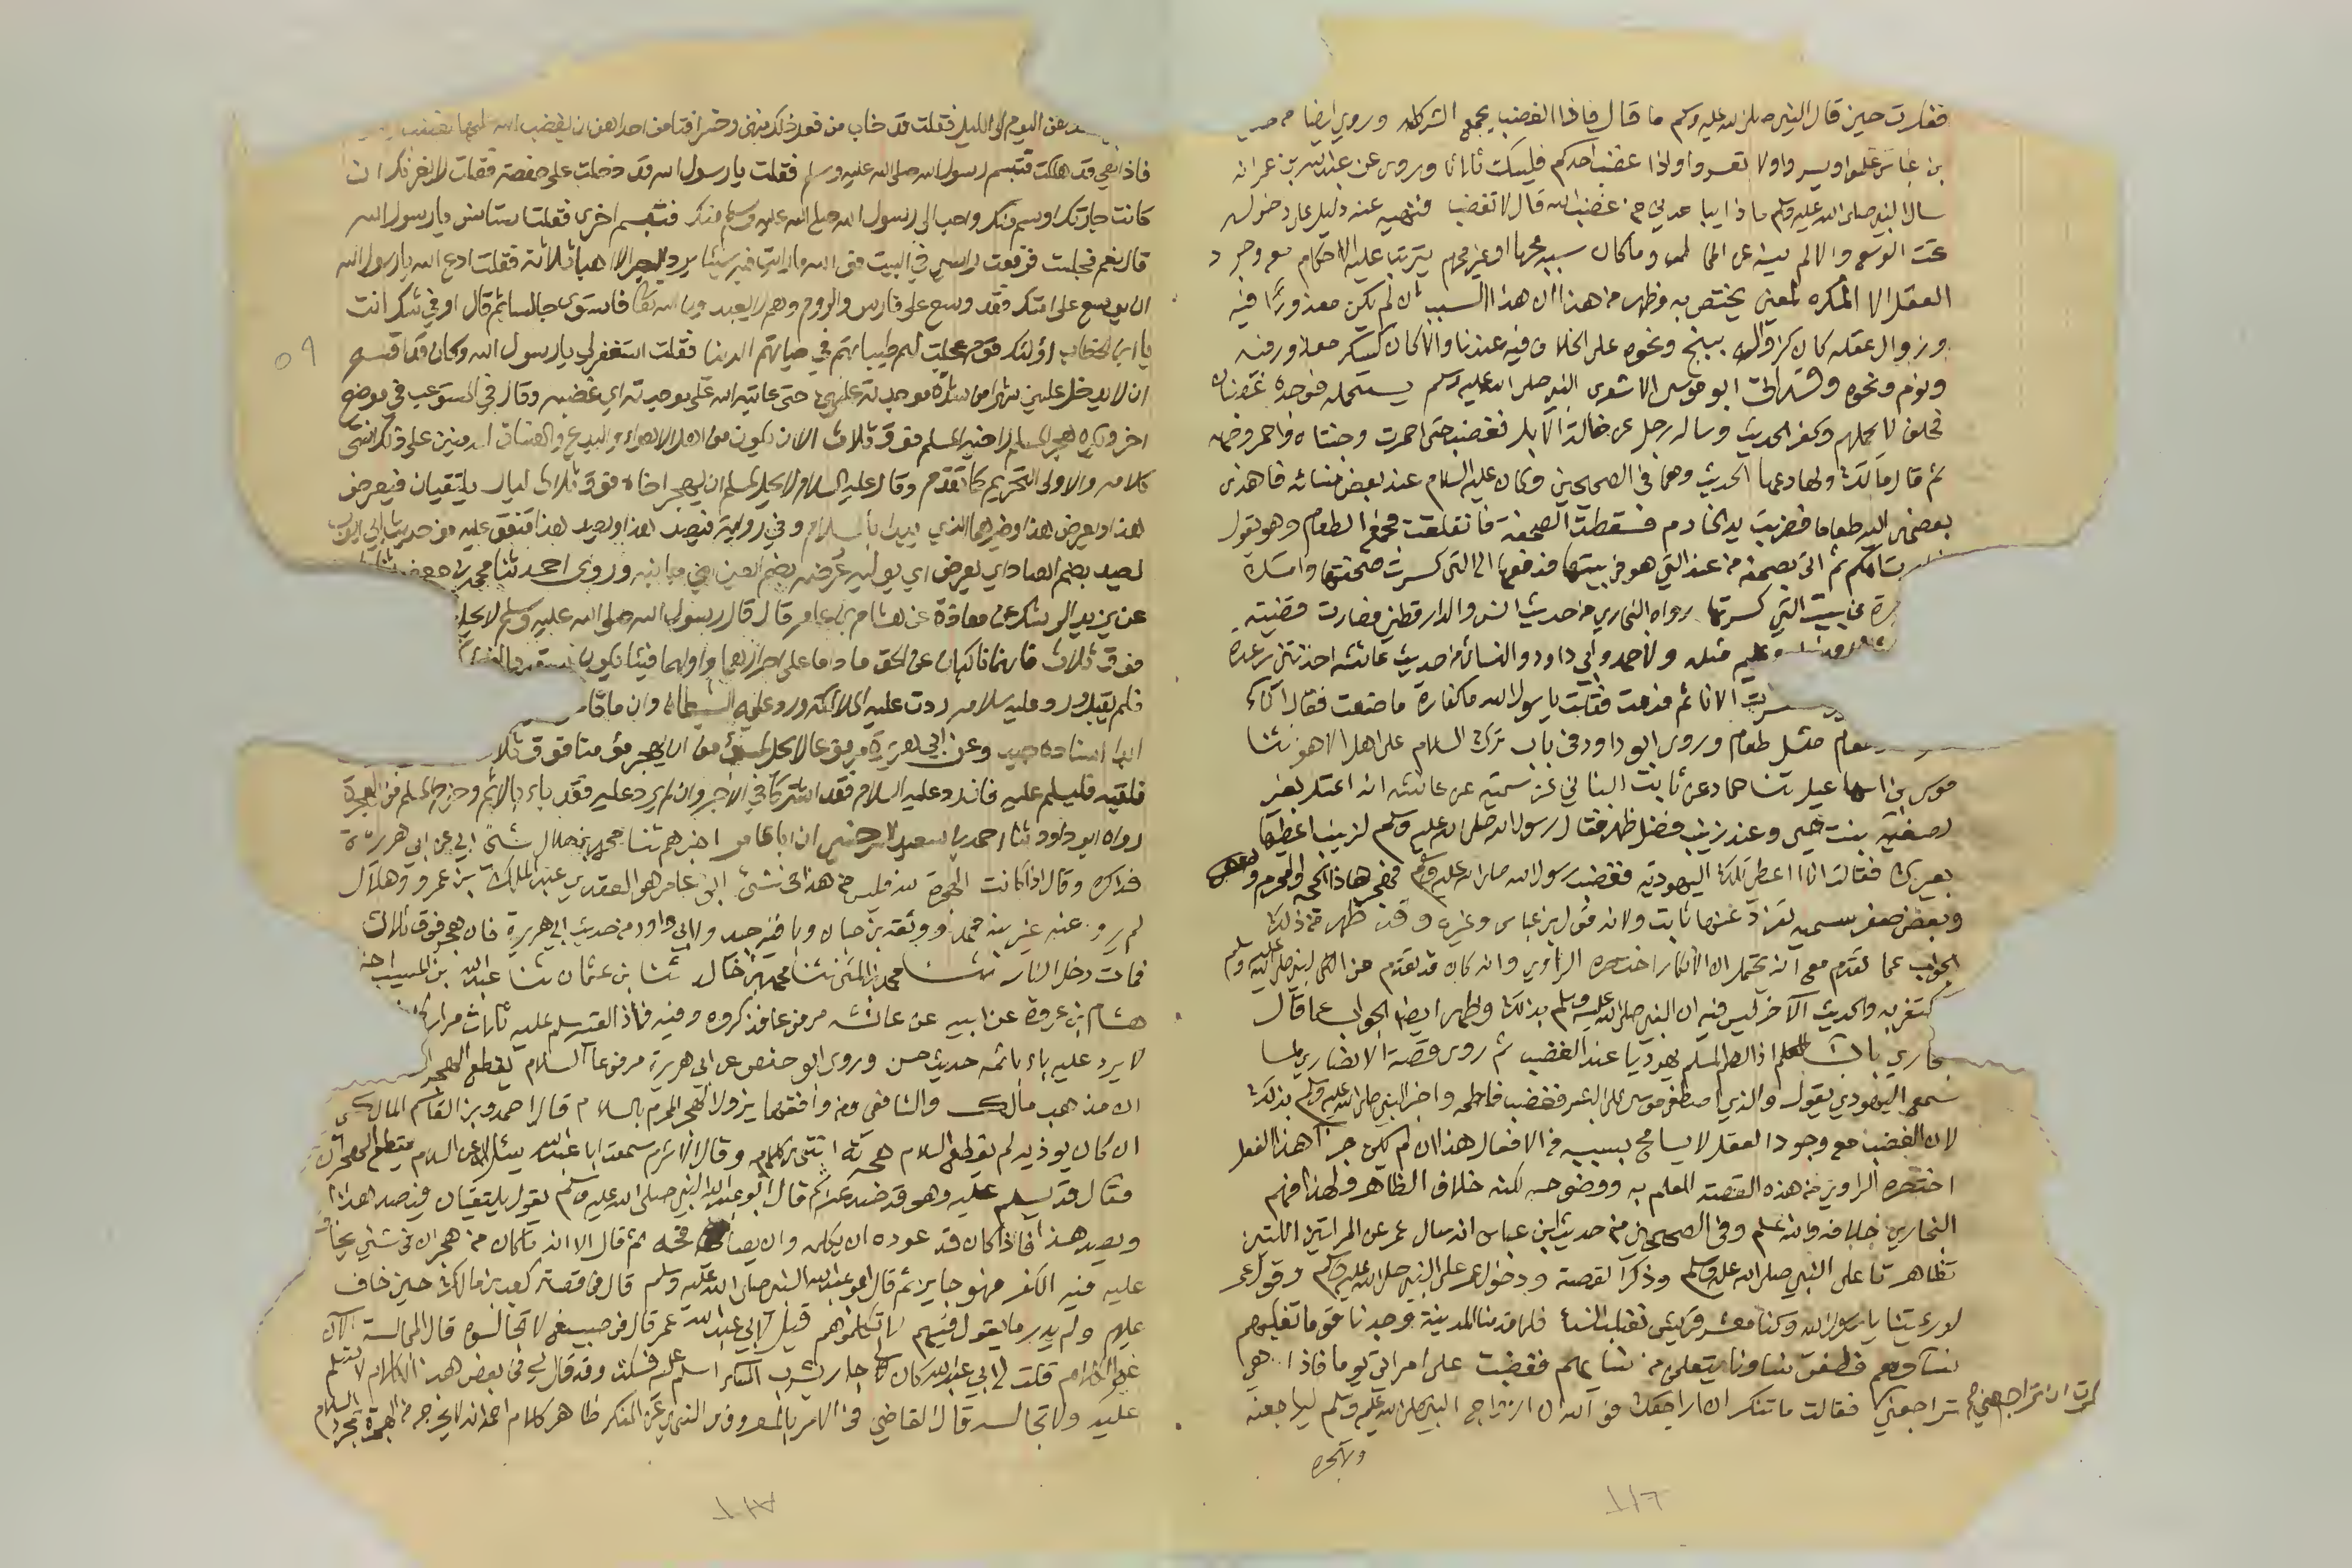 ففكرت حين قال النبي صلى الله عليه وسلم ما قال فاذا الغضب يجمع الشر كله وروى ايضا من
بن عباس علموا ويسروا ولا تعسروا واذا غضب احدكم فليسكت ثلاثا وروى عن عبد الله بن عمر انه
سال النبي صلى الله عليه وسلم ماذا يباعدني من غضب الله قال لا تغضب فنهيه عنه دليل على دخوله
تحت الوسع والا لم ينه عن المحال وما كان سببه محرما او غير محرم يترتب عليه الاحكام مع وجود
العقل الا المكره لمعنى يختص به فظهر من هذا ان هذا السبب ان لم يكن معذورا فيه
وزوال عقله كان كزواله ببنج ونحوه على الخلاف فيه عندنا والا كان كسكر معذور فيه
ونوم ونحوه ابو موسى الاشعري النبي صلى الله عليه وسلم يستحمله فوجده غضبان
فحلف لا يحملهم وكفر الحديث وساله رجل عن ضالة الابل فغضب حتى احمرت وجنتاه واحمر وجهه
ثم قال مالك ولها دعها الحديث وهما في الصحيحين وكان عليه السلام عند بعض نسائه فاهدى
بعضهن اليه طعاما فضربت يد الخادم فسقطت الصحفة فانفلقت فجمع الطعام وهو يقول
امكم ثم اتى بصحفة من عند التي هو في بيتها فدفعها الى التي كسرت صحفتها وامسك
في بيت التي كسرتها رواه البخاري من حديث انس والدارقطني فصارت قضيته
مثله ولاحمد وابي داود والنسائي من حديث عائشة اخذتني رعدة
الانا ثم قدمت فقلت يا رسول الله ما كفارة ما صنعت فقال اناء
طعام مثل طعام وروى ابو داود في باب ترك السلام على اهل الاهواء ثنا
موسى بن اسماعيل ثنا حماد عن ثابت البناني عن سمية عن عائشة انه اعتل بعير
لصفية بنت حيي وعند زينب فضل ظهر فقال رسول الله صلى الله عليه وسلم لزينب اعطيها
بعيرك فقالت انا اعطي تلك اليهودية فغضب رسول الله صلى الله عليه وسلم فهجرها ذا الحجة والمحرم وبعض
وبعض صفر سمية تفرد عنها ثابت ولانه قول ابن عباس وغيره وقد ظهر من ذلك
الجواب عما تقدم مع انه يحتمل ان الانكار اختصره الراوي وانه كان قد تقدم من النبي صلى الله عليه وسلم
والحديث الآخر ليس فيه ان النبي صلى الله عليه وسلم بذلك وظهر ايضا الجواب عما قال
اذا لطم المسلم يهوديا عند الغضب ثم روى قصة الانصاري لما
سمع اليهودي يقول والذي اصطفى موسى على البشر فغضب فلطمه واخبر النبي صلى الله عليه وسلم بذلك
لان الغضب مع وجود العقل لا يسامح بسببه في الافعال هذا ان لم يكن جزاء هذا الفعل
اختصره الراوي من هذه القصة للعلم به ووضوحه لكنه خلاف الظاهر ولهذا فهم
البخاري خلافه والله اعلم وفي الصحيحين من حديث ابن عباس انه سال عمر عن المراتين اللتين
تظاهرتا على النبي صلى الله عليه وسلم وذكر القصة ودخول عمر على النبي صلى الله عليه وسلم وقول عمر
لو رايتنا يا رسول الله وكنا معشر قريش نغلب النساء فلما قدمنا المدينة وجدنا قوما تغلبهم
نساؤهم فطفق نساؤنا يتعلمن من نسائهم فغضبت على امراتي يوما فاذا هي
تراجعني فقالت ما تنكر ان اراجعك فوالله ان ازواج النبي صلى الله عليه وسلم ليراجعنه
وتهجره
اليوم الى الليل فقلت قد خاب من فعل ذلك منهن وخسر افتامن احداهن ان يغضب الله عليها
فاذا هي قد هلكت فتبسم رسول الله صلى الله عليه وسلم فقلت يا رسول الله قد دخلت على حفصة فقلت لا يغرنك ان
كانت جارتك اوسم منك واحب الى رسول الله صلى الله عليه وسلم منك فتبسم اخرى فقلت استانس يا رسول الله
قال نعم فجلست فرفعت راسي في البيت فوالله ما رايت فيه شيئا يرد البصر الا اهبا ثلاثة فقلت ادع الله يا رسول الله
ان يوسع على امتك فقد وسع على فارس والروم وهم لا يعبدون الله فاستوى جالسا ثم قال اوفي شك انت
يا ابن الخطاب اولئك قوم عجلت لهم طيباتهم في حياتهم الدنيا فقلت استغفر لي يا رسول الله وكان قد اقسم
ان لا يدخل عليهن شهرا من شدة موجدته عليهن حتى عاتبه الله تعالى موجدته اي غضبه وقال في المستوعب في موضع
اخر ويكره هجر المسلم لاخيه المسلم فوق ثلاث الا ان يكون من اهل الاهواء والبدع والفساق المدمنين على ذلك انتهى
كلامه والاولى التحريم كما تقدم وقال عليه السلام لا يحل لمسلم ان يهجر اخاه فوق ثلاث ليال يلتقيان فيعرض
هذا ويعرض هذا وخيرهما الذي يبدا بالسلام وفي رواية فيصد هذا ويصد هذا متفق عليه من حديث ابي ايوب
يصد بضم الصاد اي يعرض اي يوليه عرضه بضم العين اي جانبه وروى احمد ثنا محمد بن جعفر
عن يزيد الرشك عن معاذة عن هشام بن عامر قال قال رسول الله صلى الله عليه وسلم لا يحل
فوق ثلاث فانهما ناكبان عن الحق ما داما على صرامهما واولهما فيئا يكون
فلم يقبل ورد عليه سلامه ردت عليه الملائكة ورد على الشيطان وان ماتا
ابدا اسناده جيد وعن ابي هريرة مرفوعا لا يحل لمؤمن ان يهجر مؤمنا فوق ثلاث
فلقيه فليسلم عليه فان رد عليه السلام فقد اشتركا في الاجر وان لم يرد عليه فقد باء بالاثم وخرج المسلم من الهجرة
رواه ابو داود ثنا احمد بن سعيد السرخسي ان ابا عامر اخبرهم ثنا محمد بن هلال حدثني ابي عن ابي هريرة
فذكره وقال اذا كانت الهجرة لله فليس من هذا في شيء ابو عامر هو العقدي عبد الملك بن عمرو وهلال
لم يرو عنه غير ابنه محمد ووثقه بن حبان وباقيه جيد ولابي داود من حديث ابي هريرة فان هجر فوق ثلاث
فمات دخل النار ثنا محمد بن المثنى ثنا محمد بن خالد ثنا بن عثمان ثنا عبد الله بن المسيب
هشام بن عروة عن ابيه عن عائشة مرفوعا فذكره وفيه فاذا لقيه سلم عليه ثلاث مرار
لا يرد عليه باء باثمه حديث حسن وروى ابو حفص عن ابي هريرة مرفوعا السلام يقطع الهجران
مذهب مالك والشافعي ومن وافقهما يزول الهجر المحرم بالسلام قال احمد وبن القاسم المالكي
ان كان يؤذيه لم يقطع السلام هجرته انتهى كلامه وقال الاثرم سمعت ابا عبد الله يسال عن السلام يقطع الهجران
فقال قد يسلم عليه وهو قد صد عنه ثم قال ابو عبد الله النبي صلى الله عليه وسلم يقول يلتقيان فيصد هذا
ويصد هذا فاذا كان قد عوده ان يكلمه وان يصافحه ثم قال الا انه ما كان من هجران في شيء يخاف
عليه فيه الكفر فهو جايز ثم قال ابو عبد الله النبي صلى الله عليه وسلم قال في قصة كعب بن مالك حين خاف
عليهم ولم يدر ما يقول فيهم لا تكلموهم قيل لابي عبد الله عمر قال في صبيغ لا تجالسوه قال المجالسة الان
غير الكلام قلت لابي عبد الله كان لي جار يشرب المسكر اسلم عليه فسكت وقد قال لي في بعض هذا الكلام لا تسلم
عليه ولا تجالسه قال القاضي في الامر بالمعروف والنهي عن المنكر ظاهر كلام احمد انه لا يخرج من الهجرة بمجرد السلام